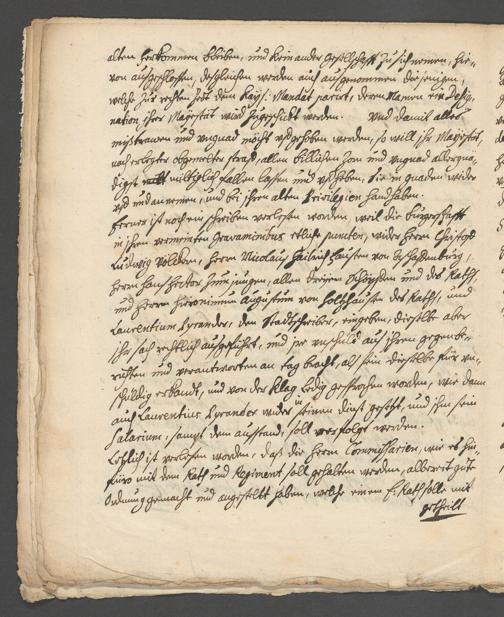 alten herkommen bleiben, und kein ander gesellschafft zu sich nemen, hie-
von aufgeschlossen, desgleichen werden auch ausgenommen diejenigen,
welche zur rechten Zeit dem Kays: Mandat parirt, deren Namen ein Desig-
nation ihrer Maiestät wird zugeschickt werden. Und damit alles
mistrawen und ungnad möcht uffgehoben werden, so will ihr Maiestät,
nach erlegter obgemelter straff, allen billichen Zorn und ungnad allergnä-
digst miltiglich fallen lassen und uffheben, sie in gnaden wider
uff und annemen, und bei ihren alten Privilegien handhaben.
Ferner ist noch ein schreiben verlesen worden, weil die burgerschafft
in ihren vermeinten Gravaminibus etliche puncten, wider Herrn Christoph
Ludwig Völcker, Herrn Nicolaus
Herrn Hans Hector zum jungen, allen dreyen Schöpffen und des Raths,
und Herrn Hieronimum Augustum von Holtzhausen des Raths, und
Laurentium Pyrander, den Stadtschreiber, eingeben, dieselbe aber
ihr sach rechtlich aufgeführt, und ihr unschuld auf ihren gegenbe-
richten und verantworten an tag bracht, als sein dieselbe für un-
schüldig erkandt, und von der klag ledig gesprochen worden, wie dann
auch Laurentius Pyrander wider in seinen dinst gesetzt, und ihm sein
Salarium, sampt dem ausstand, soll verfolgt werden.
Letzlich ist verlesen worden, daß die Herrn Commissarien, wie es hin-
füro mit dem Rath und Regiment soll gehalten werden, allbereit gute
Ordnung gemacht und angestellt haben, welche einem E. Rath solle mit
getheilt